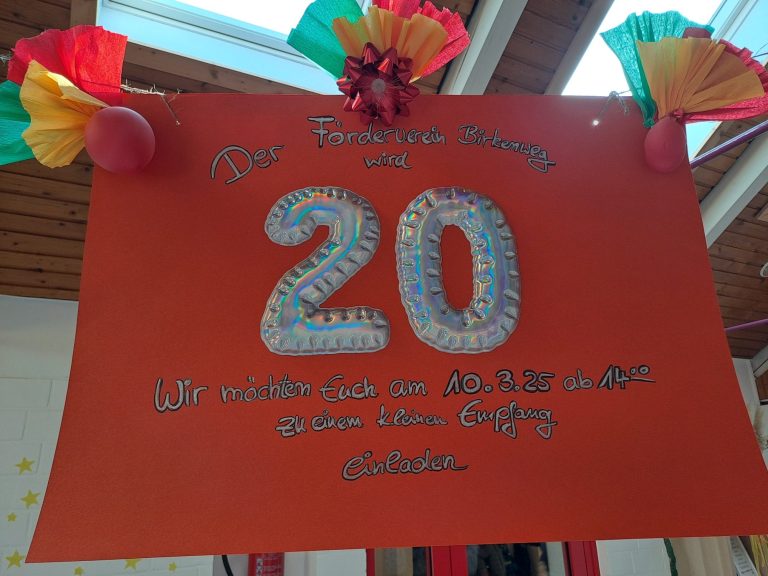 Der Förderverein Birkenweg
wird
20
Wir möchten Euch am 10.3.25 ab 14°°
zu einem kleinen Empfang
einladen